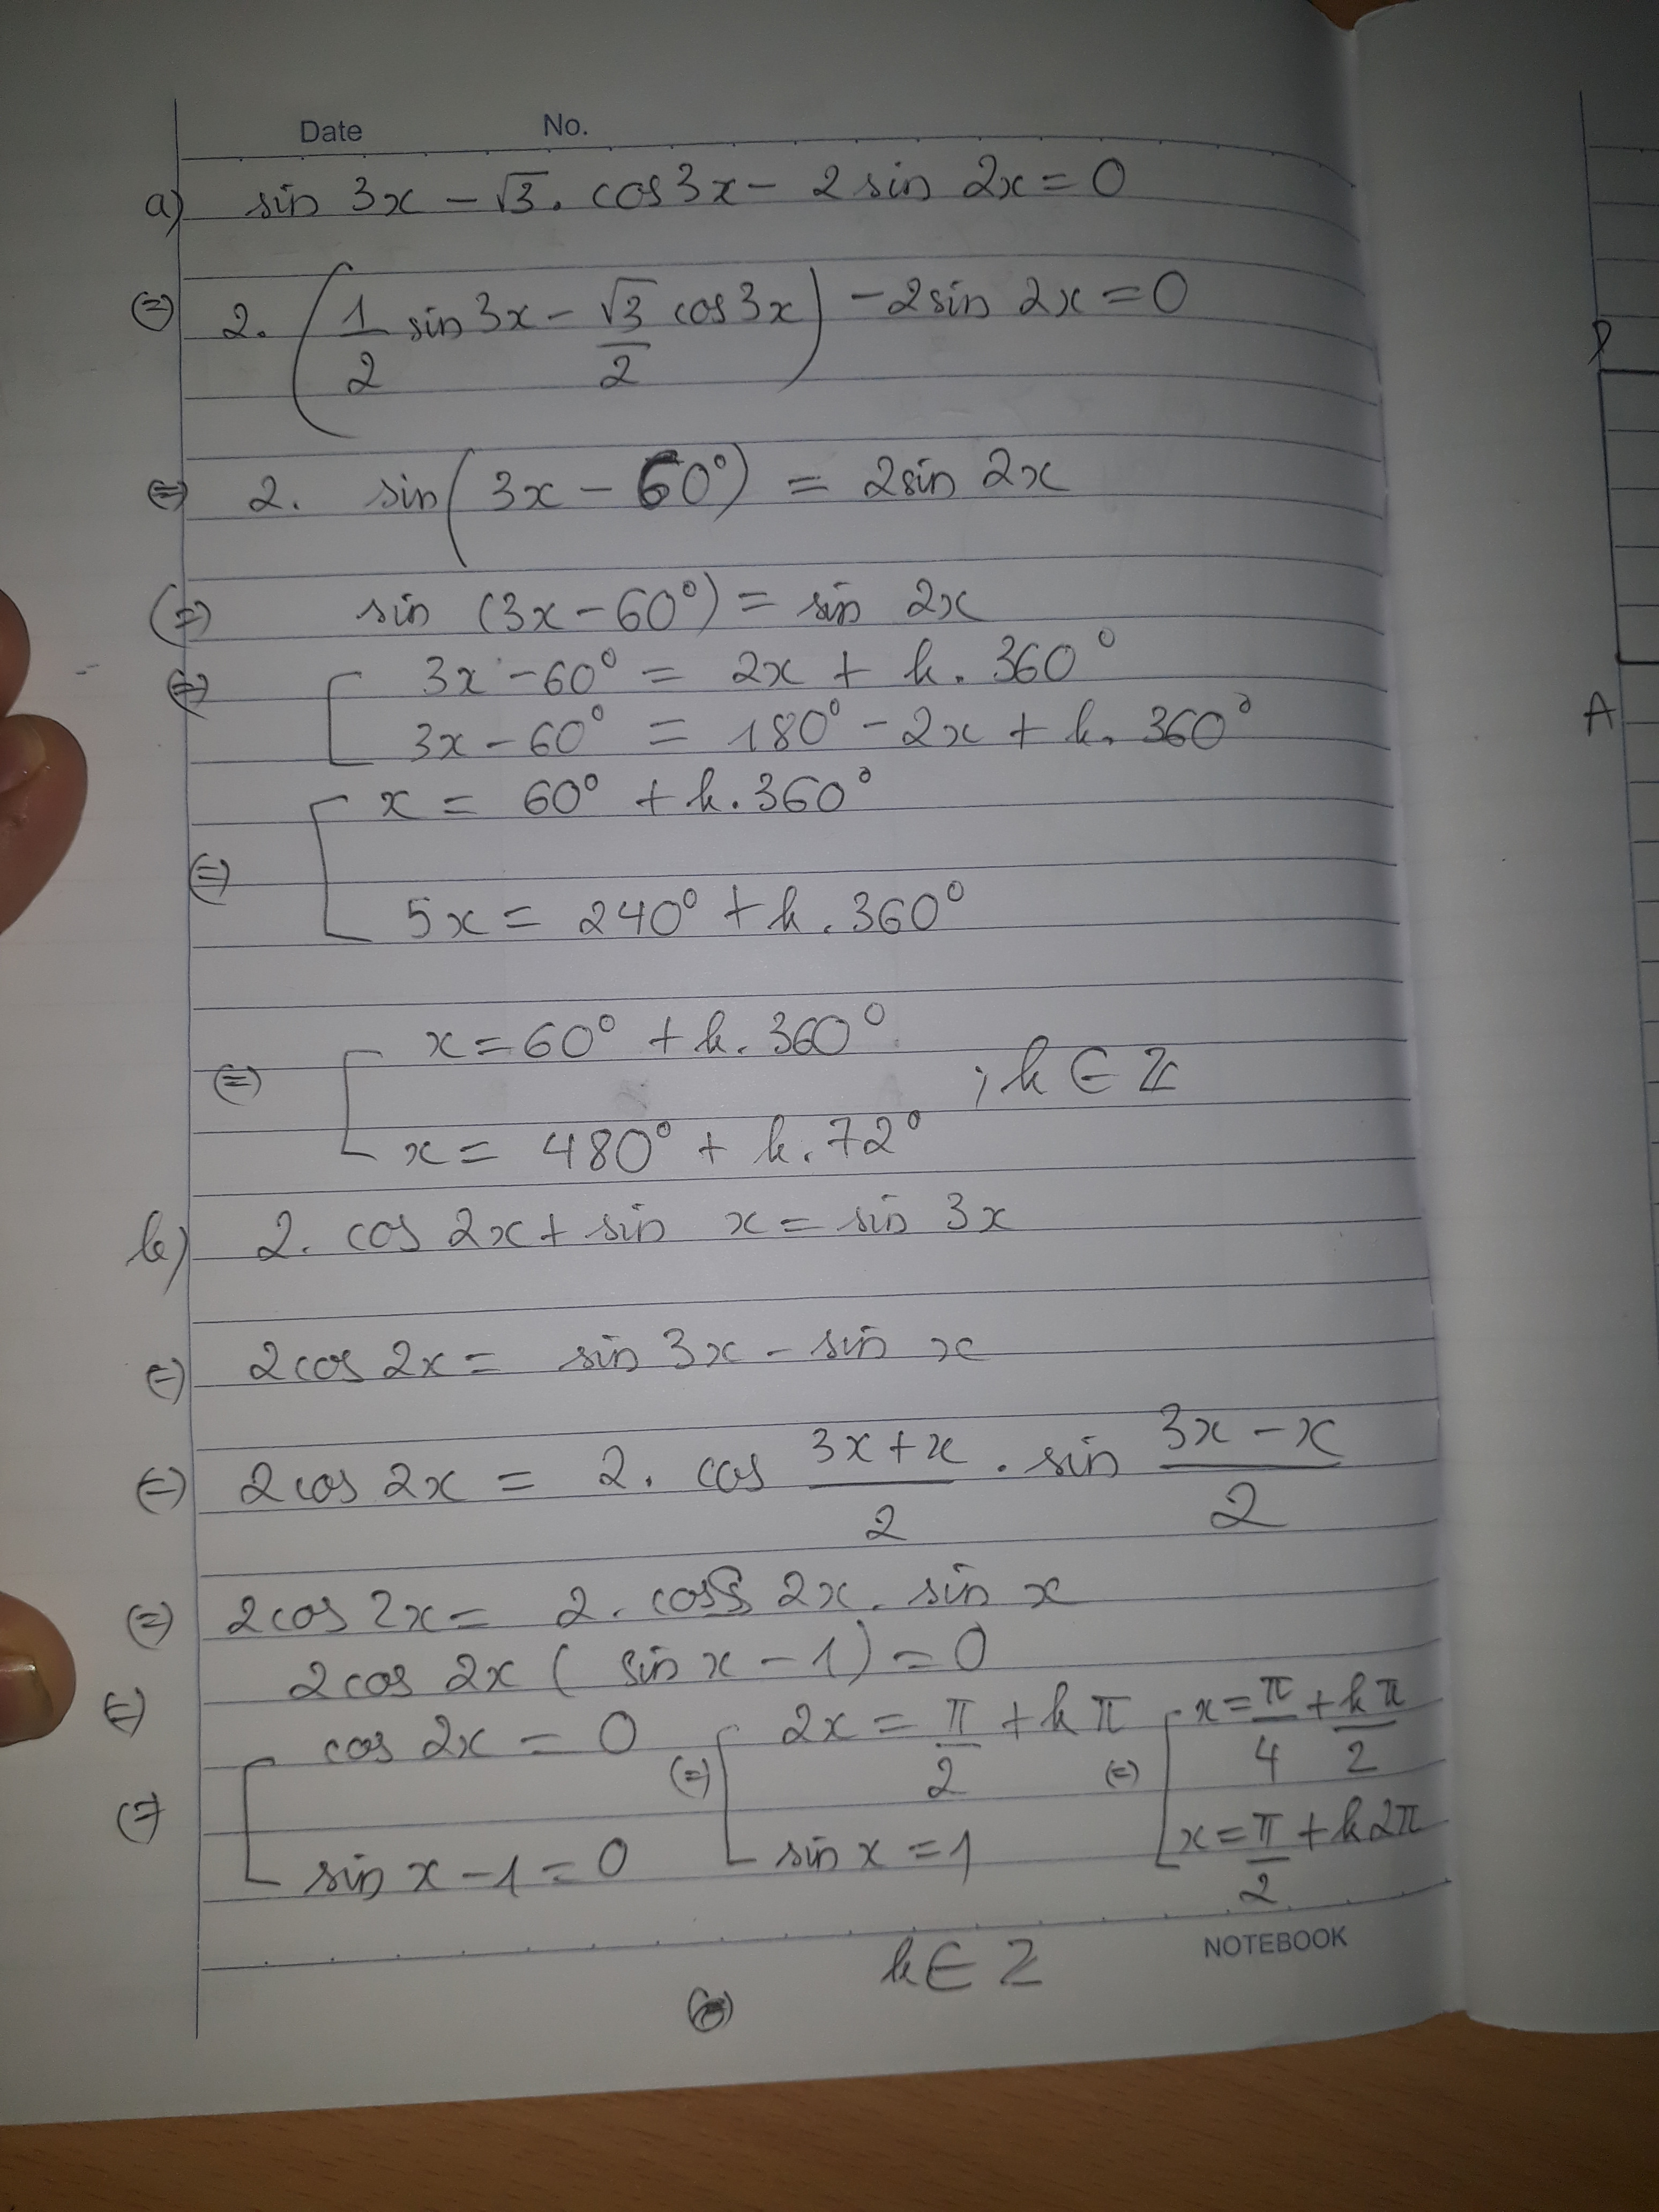 Date No.
a) sin 3x - √3. cos3x - 2 sin 2x = 0
(=) 2. (1/2 sin 3x - √3/2 cos3x) - 2sin 2x = 0
(=) 2. sin(3x - 60°) = 2sin 2x
(=) sin (3x - 60°) = sin 2x
(=) [ 3x - 60° = 2x + k. 360°
3x - 60° = 180° - 2x + k. 360°
(=) [ x = 60° + k. 360°
5x = 240° + k. 360°
(=) [ x = 60° + k. 360°
; k ∈ Z
x = 480° + k. 72°
b) 2. cos 2x + sin x = sin 3x
(=) 2cos 2x = sin 3x - sin x
(=) 2cos 2x = 2. cos 3x + x/2 . sin 3x - x/2
(=) 2cos 2x = 2. cos 2x. sin x
(=) 2cos 2x ( sin x - 1) = 0
(=) [ cos 2x = 0 (=) [ 2x = π/2 + kπ (=) [ x = π/4 + kπ/2
sin x - 1 = 0 sin x = 1 x = π/2 + k2π
k ∈ Z
NOTEBOOK
D
A